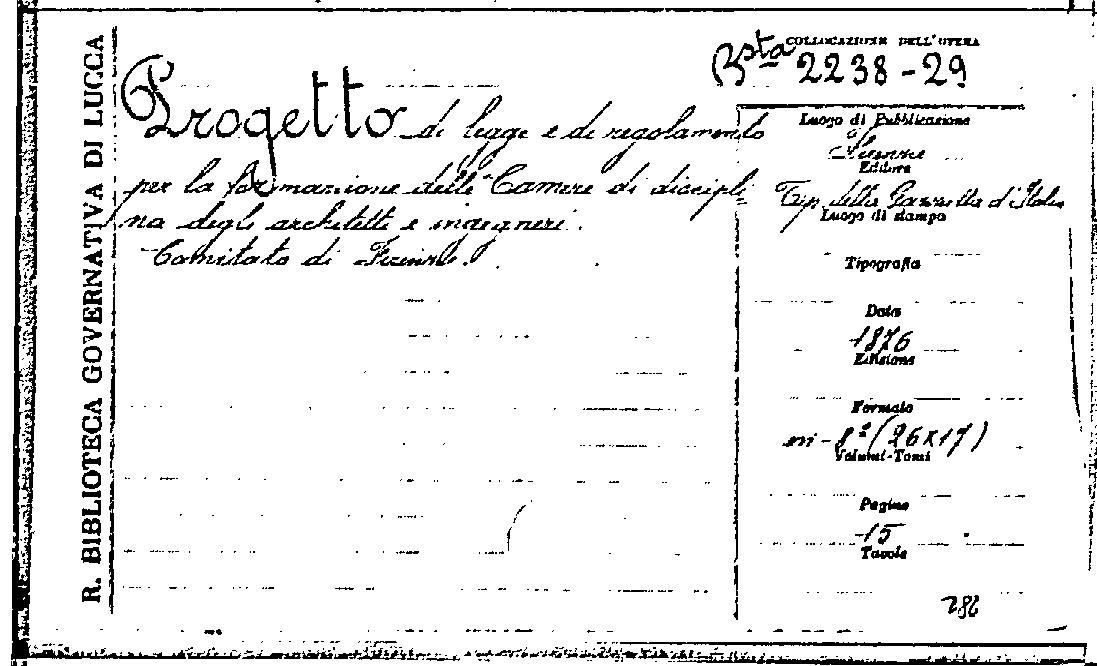 R. BIBLIOTECA GOVERNATIVA DI LUCCA
COLLOCAZIONE DELL'OPERA
Bsta 2238-29
Progetto di legge e di regolamento
per la formazione delle Camere di discipli
na degli architetti e ingegneri.
Comitato di Firenze.
Luogo di Pubblicazione
Firenze
Editore
Tip. della Gazzetta d'Italia
Luogo di stampa
Tipografia
Data
1876
Edizione
Formato
in-8º (26x17)
Volumi-Tomi
Pagine
15
Tavole
282